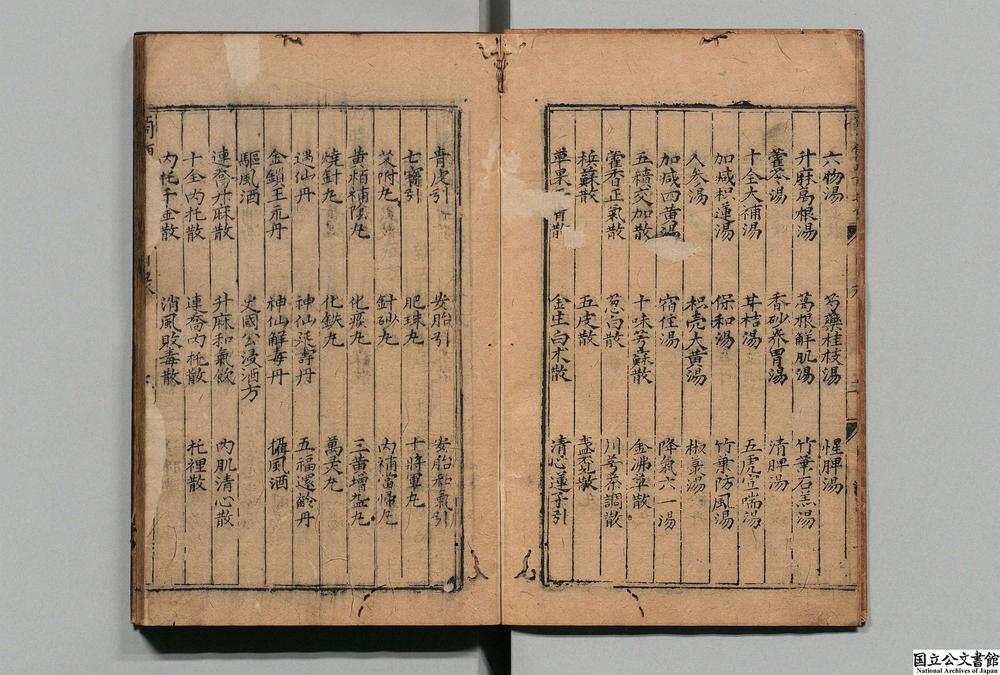 六物湯 芍藥桂枝湯 惺脾湯
升麻葛根湯 葛根解肌湯 竹葉石羔湯
藿苓湯 香砂養胃湯 清脾湯
十全大補湯 甘桔湯 五虎宣喘湯
加减枳蓮湯 保和湯 竹葉防風湯
人参湯 枳壳大黄湯 椒棗湯
加减四黄湯 宿住湯 降氣六一湯
五積交加散 十味芎蘇散 金沸草散
藿香正氣散 葱白散 川芎茶調散
檳蘇散 五皮散
草果 散 金生白木散 清心蓮子引
青皮引 安胎引 安胎和氣引
七寶引 肥珠丸 十將軍丸
艾附丸 針砂丸 内補當帰丸
黄栢補陰丸 化癥丸 三黄增益丸
燒針丸 化鉄丸 萬灵丸
遇仙丹 神仙延壽丹 五福還齡丹
金鎖玉元丹 神仙解毒丹 攝風酒
驅風酒 史國公浸酒方
連喬升麻散 升麻和氣飲 内肌清心散
十全内托散 連喬内托散 托裡散
内托千金散 消風敗毒散
国立公文書館
National Archives of Japan